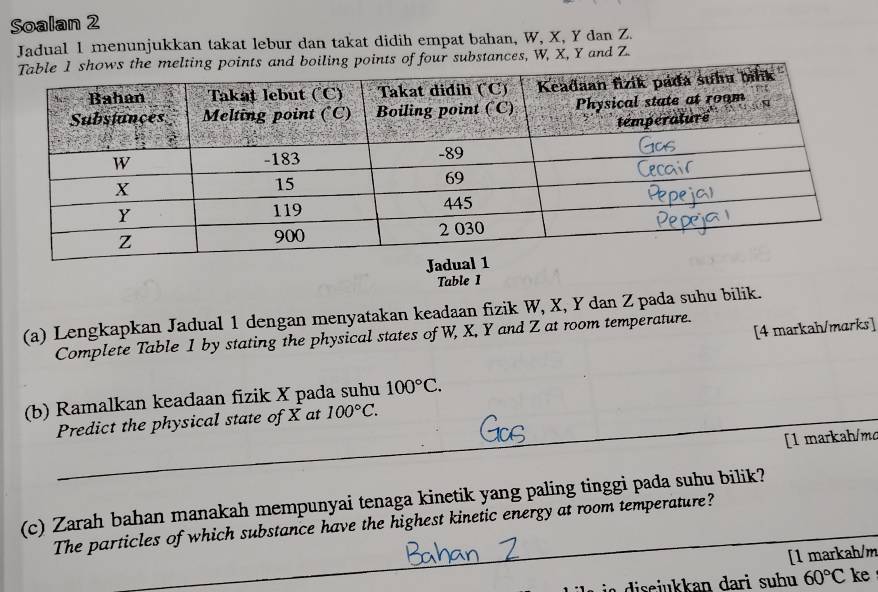 Soalan 2
Jadual 1 menunjukkan takat lebur dan takat didih empat bahan, W, X, Y dan Z.
Table 1 shows the melting points and boiling points of four substances, W, X, Y and Z.
Bahan Takat lebut (°C) Takat didih (°C) Keadaan fizik pada suhu bilik
Substances Melting point (°C) Boiling point (°C) Physical state at room temperature
W -183 -89 Gas
X 15 69 Cecair
Y 119 445 Pepejal
Z 900 2 030 Pepejal
Jadual 1
Table 1
(a) Lengkapkan Jadual 1 dengan menyatakan keadaan fizik W, X, Y dan Z pada suhu bilik.
Complete Table 1 by stating the physical states of W, X, Y and Z at room temperature.
[4 markah/marks]
(b) Ramalkan keadaan fizik X pada suhu 100°C.
Predict the physical state of X at 100°C.
Gas
[1 markah/ma
(c) Zarah bahan manakah mempunyai tenaga kinetik yang paling tinggi pada suhu bilik?
The particles of which substance have the highest kinetic energy at room temperature?
Bahan Z
[1 markah/m
disejukkan dari suhu 60°C ke